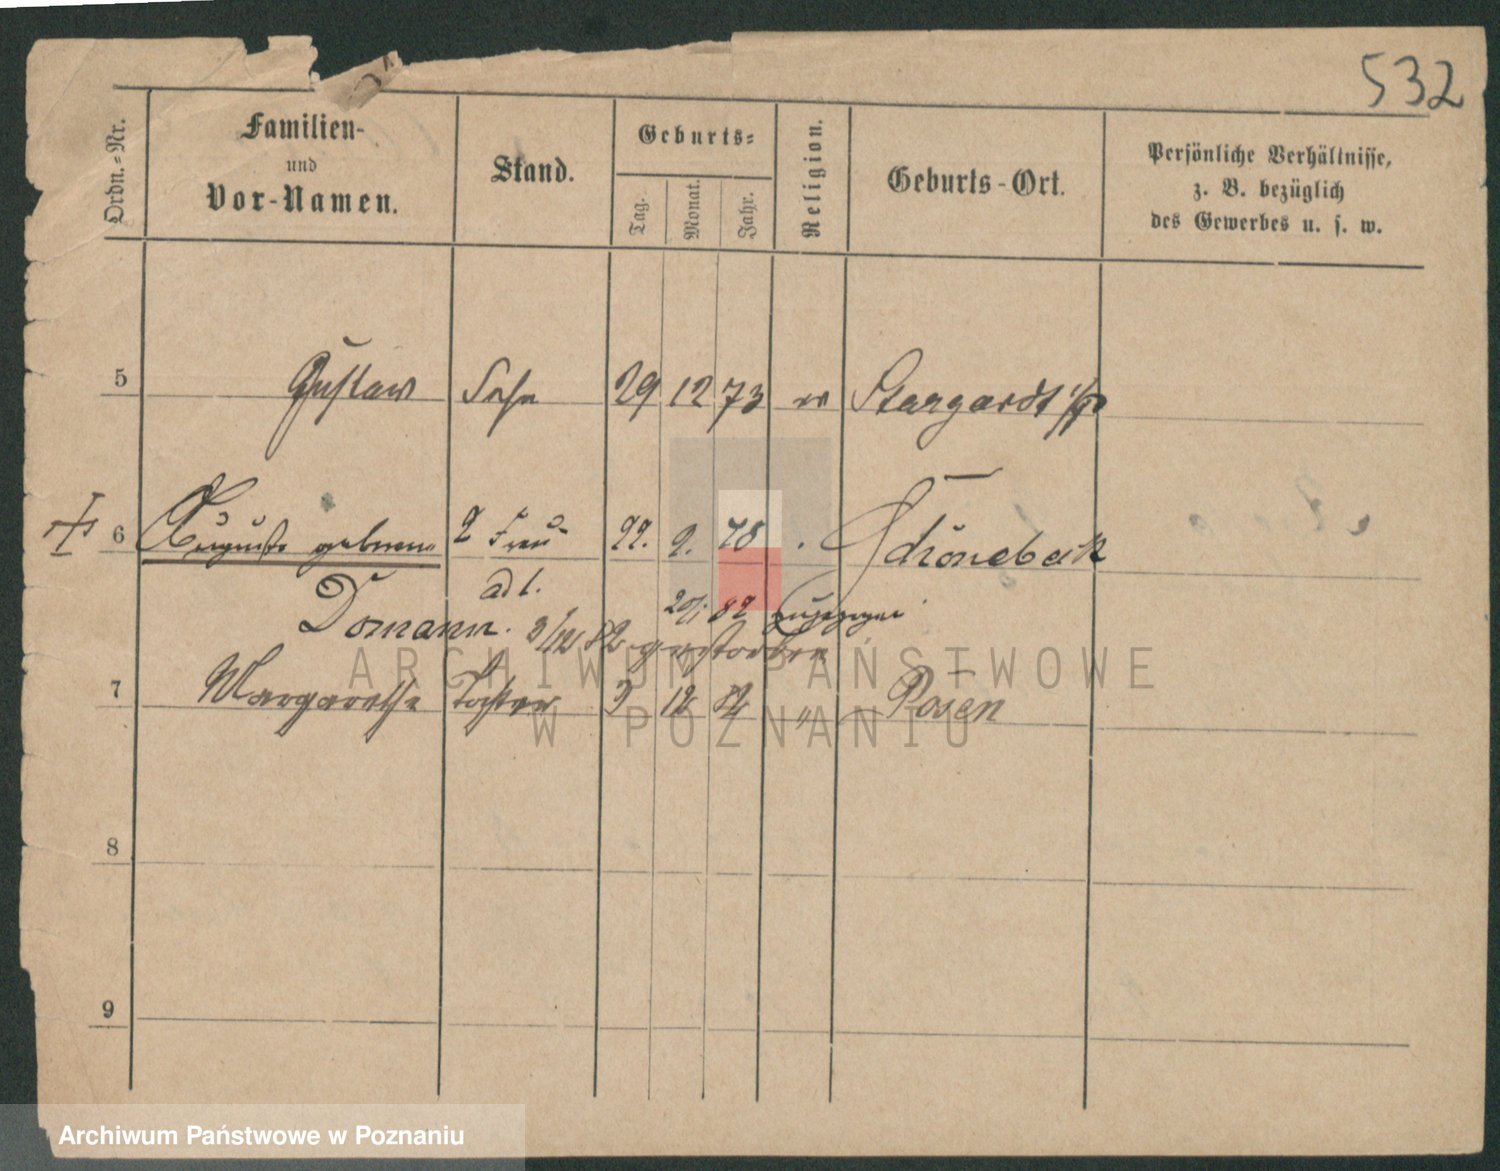 532
Ordn.-Nr.
Familien-
und
Vor-Namen.
Stand.
Geburts-
Tag.
Monat.
Jahr.
Religion.
Geburts-Ort.
Persönliche Verhältnisse,
z. B. bezüglich
des Gewerbes u. s. w.
5 Gustav Sohn 29 12 73 ev Stargardt
6 Auguste geborene 2 Frau 22. 9. Schönebeck
Domann. adl. 20/1 82 zugezogen
3/12 82 gestorben
7 Margarethe Tochter 3 12 82 " Posen
8
9
ARCHIWUM PAŃSTWOWE
W POZNANIU
Archiwum Państwowe w Poznaniu